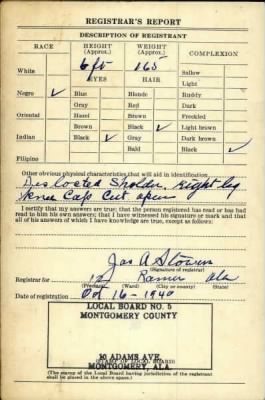 REGISTRAR'S REPORT
DESCRIPTION OF REGISTRANT
RACE HEIGHT (Approx.) WEIGHT (Approx.) COMPLEXION
White 6 ft 165 Sallow
EYES HAIR Light
Negro ✓ Blue Blonde Ruddy
Gray Red Dark
Oriental Hazel Brown Freckled
Brown Black ✓ Light brown
Indian Black ✓ Gray Dark brown
Bald Black ✓
Filipino
Other obvious physical characteristics that will aid in identification
Dislocated Sholder, Right leg
Knee Cap Cut open
I certify that my answers are true; that the person registered has read or has had read to him his own answers; that I have witnessed his signature or mark and that all of his answers of which I have knowledge are true, except as follows:
Jas A Stowers
(Signature of registrar)
Registrar for 12 Ramer Ala
(Precinct) (Ward) (City or county) (State)
Date of registration Oct 16 - 1940
LOCAL BOARD NO. 5
MONTGOMERY COUNTY
10 ADAMS AVE.
(STAMP OF LOCAL BOARD)
MONTGOMERY, ALA.
(The stamp of the Local Board having jurisdiction of the registrant shall be placed in the above space.)